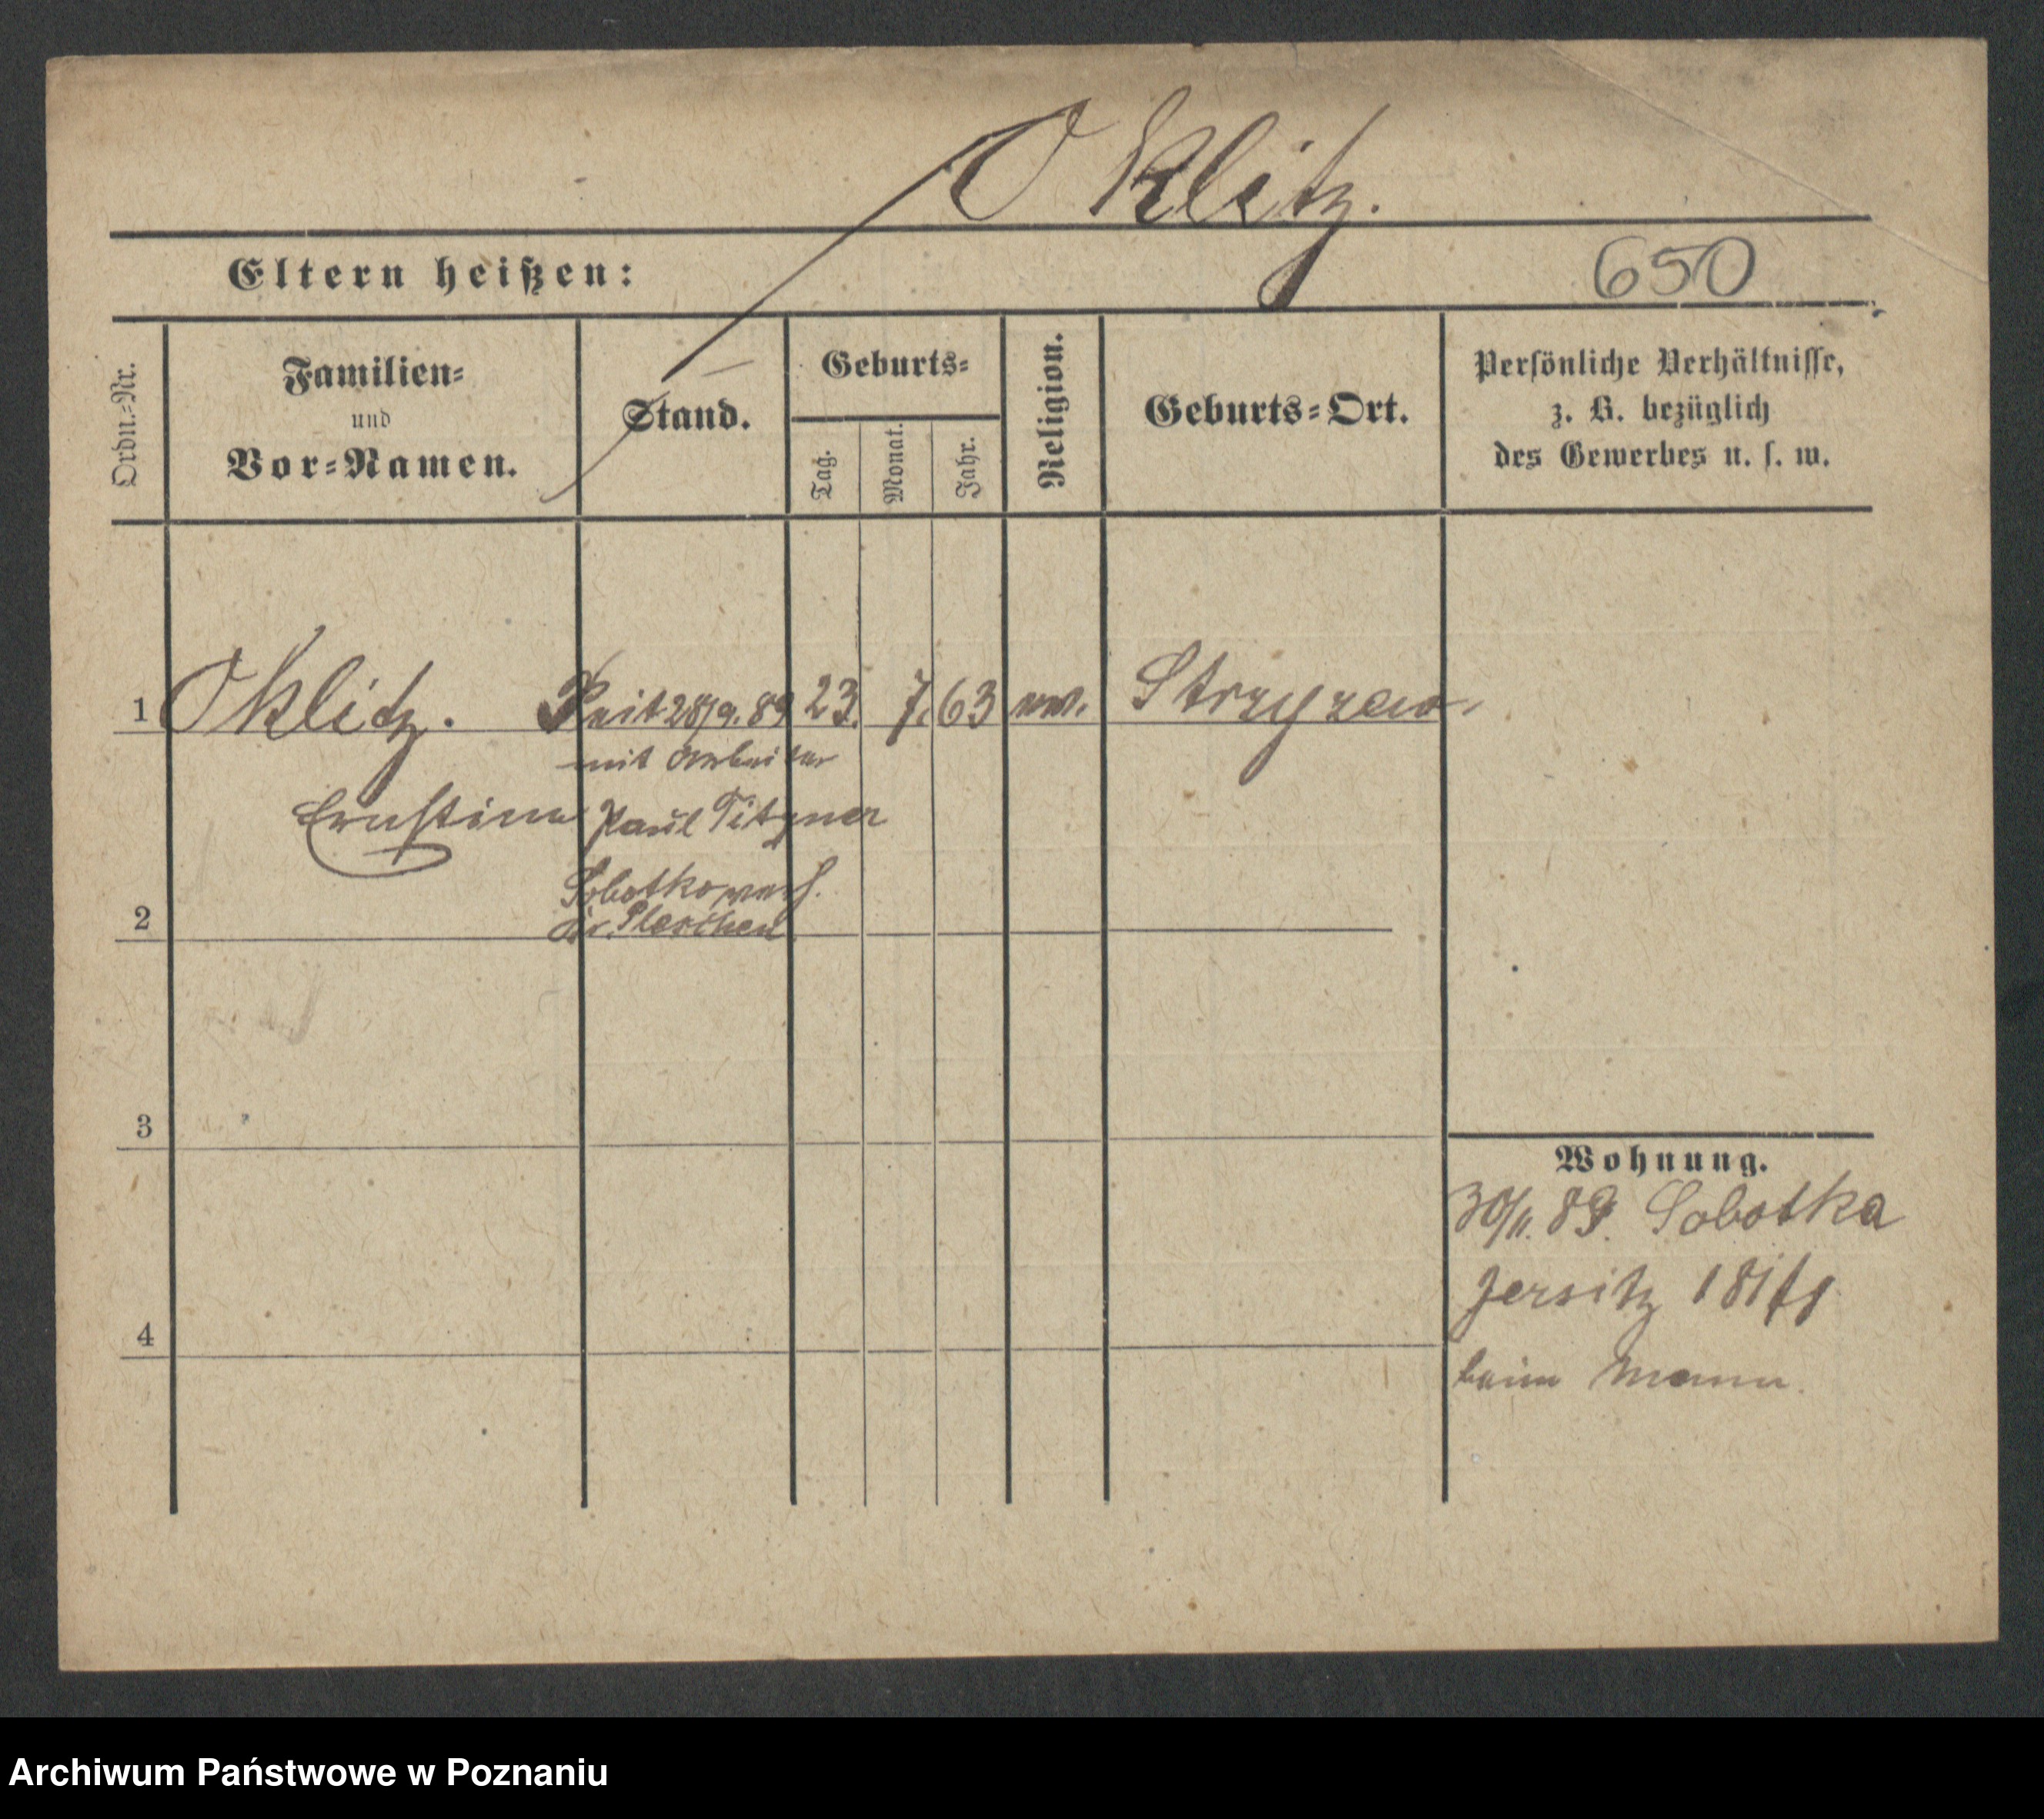 Oklitz.
Eltern heißen:
650
Ordn.=Nr.
Familien=
und
Vor=Namen.
Stand.
Geburts=
Tag.
Monat.
Jahr.
Religion.
Geburts=Ort.
Persönliche Verhältnisse,
z. B. bezüglich
des Gewerbes u. s. w.
1 Oklitz. seit 28/9. 89 23. 7. 63 ev. Strzyzew.
mit Arbeiter
Ernstine Paul Titzner
2
Kr. Pleschen
3
4
Wohnung.
30/11. 89. Sobotka
Jersitz
beim Mann.
Archiwum Państwowe w Poznaniu